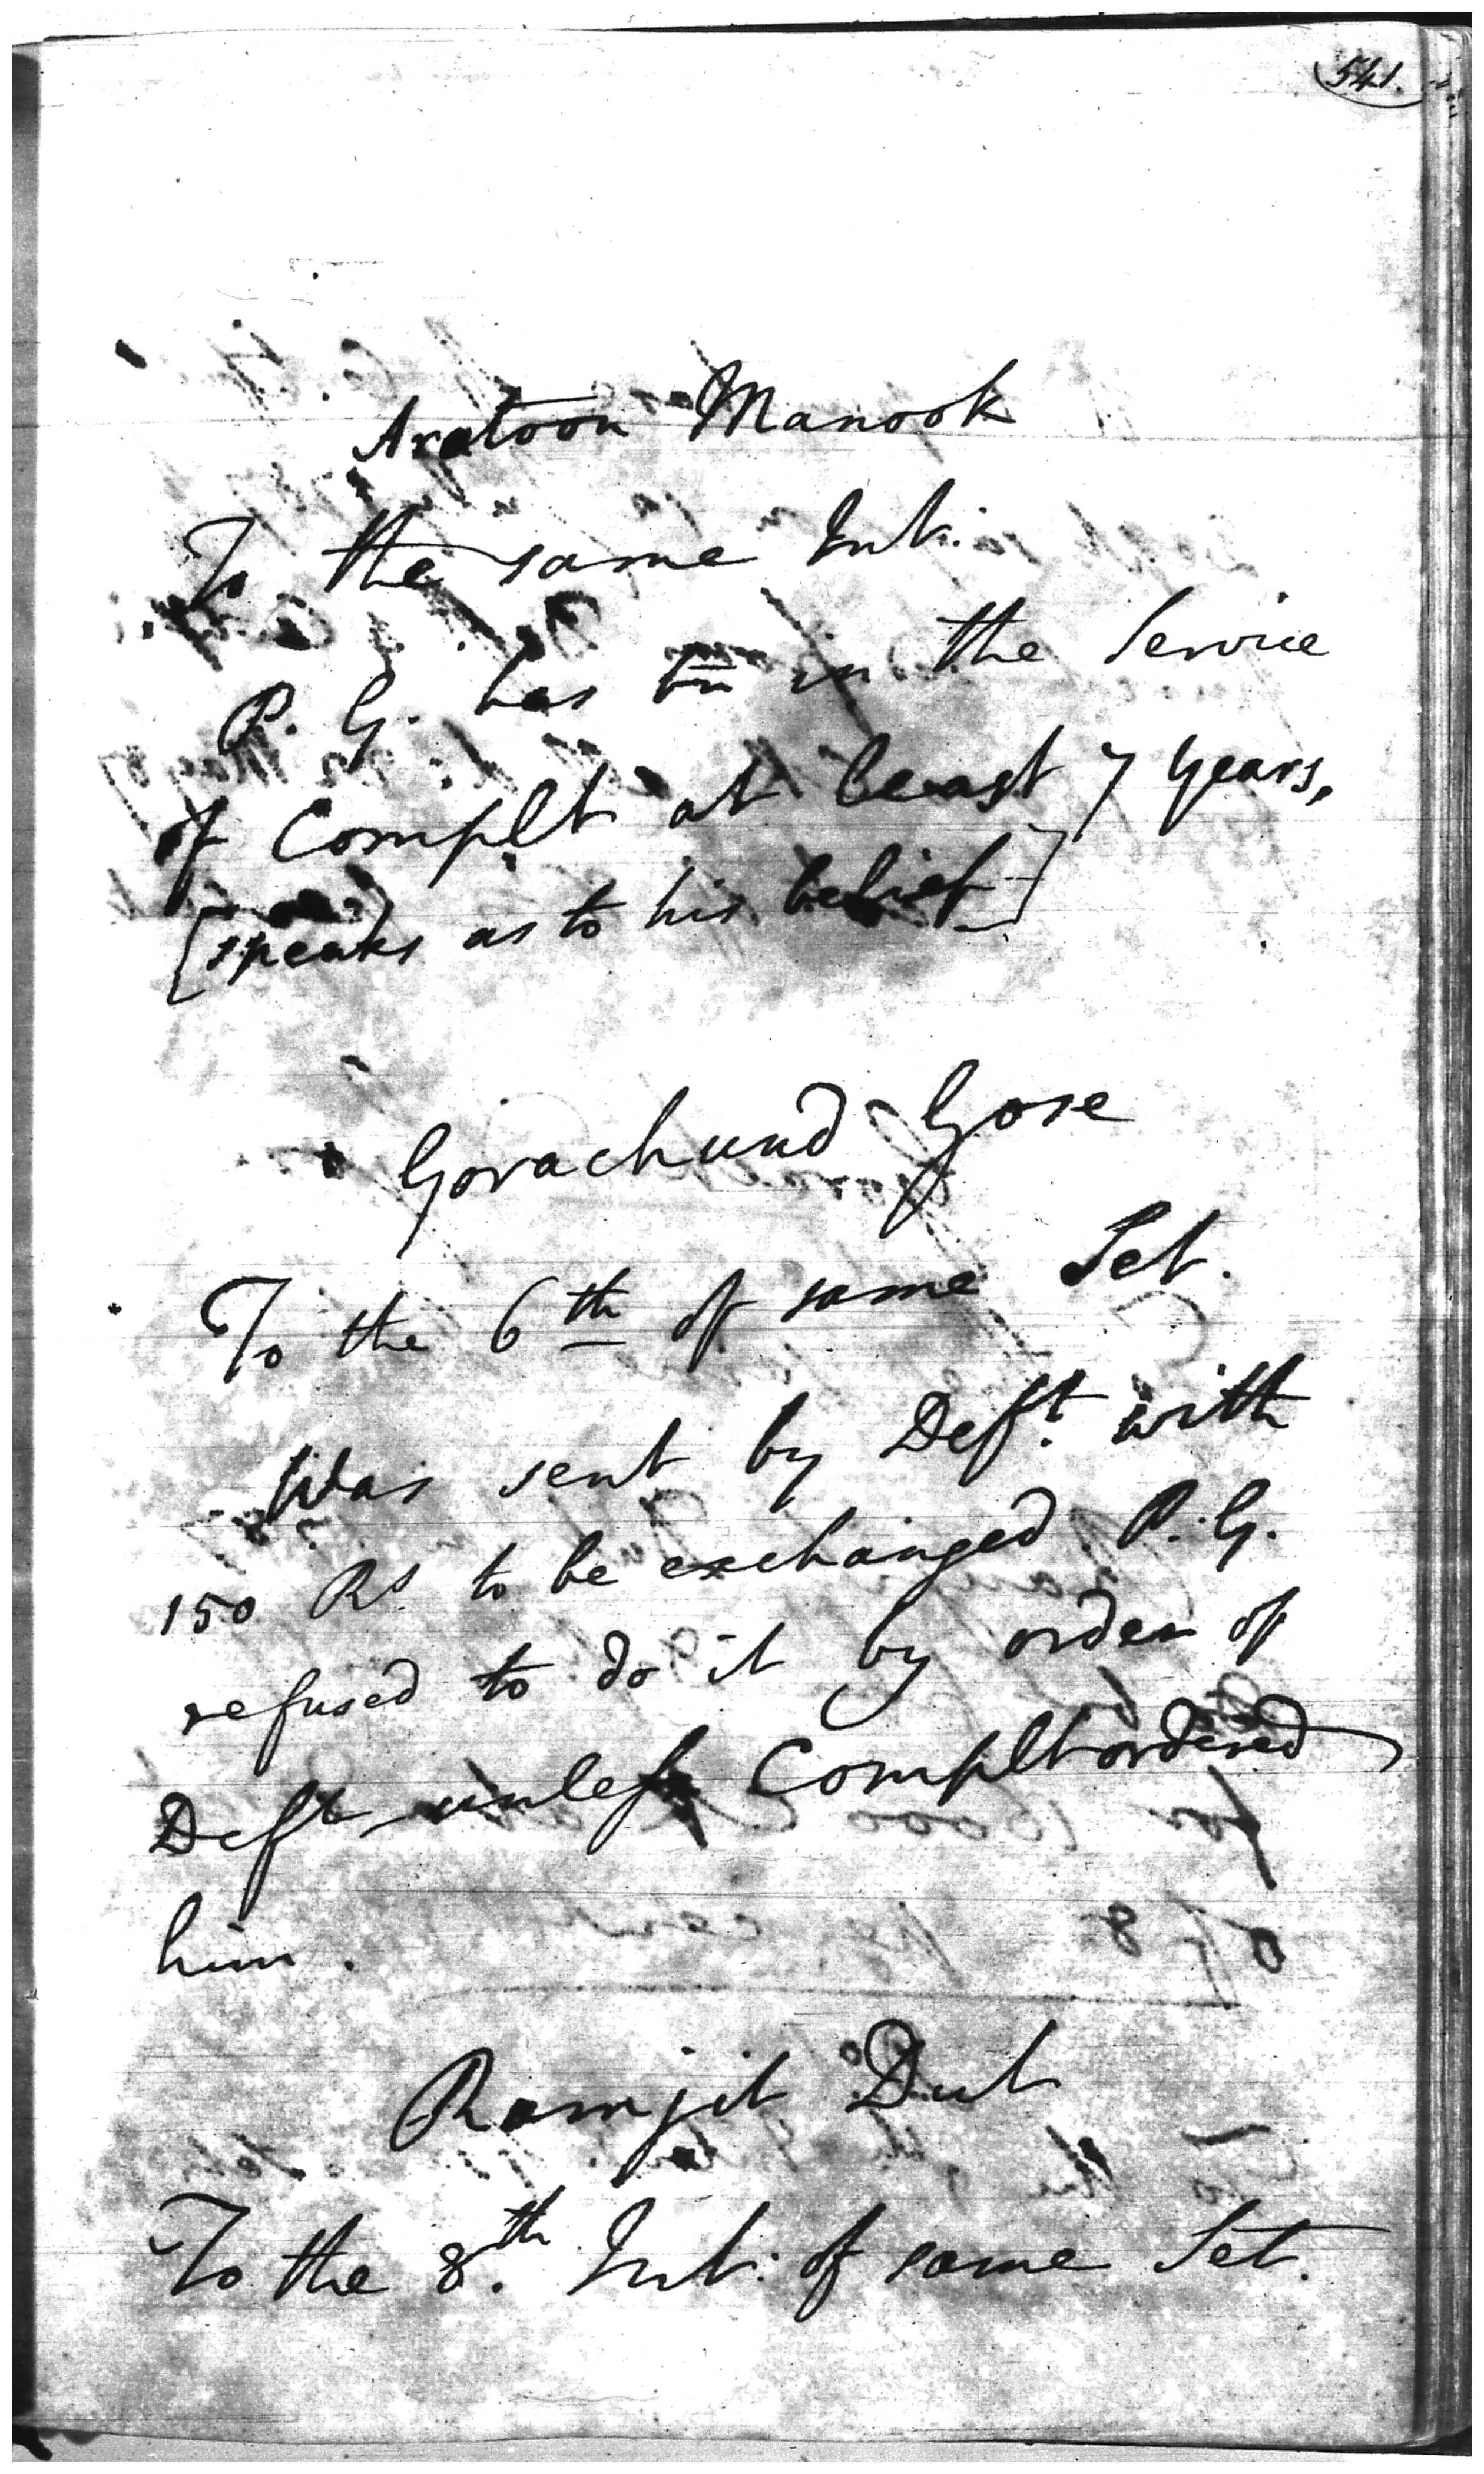 541.
Aratoon Manook
To the same Int:
P. G. has bn in the Service
of Complt at least 7 Years,
[speaks as to his belief]
Gorachund Gose
To the 6th of same Set.
Was sent by Deft. with
150 Rs to be exchanged P. G.
refused to do it by order of
Deft unless Complt ordered
him.
Ramjit Dut
To the 8th. Int: of same Set.